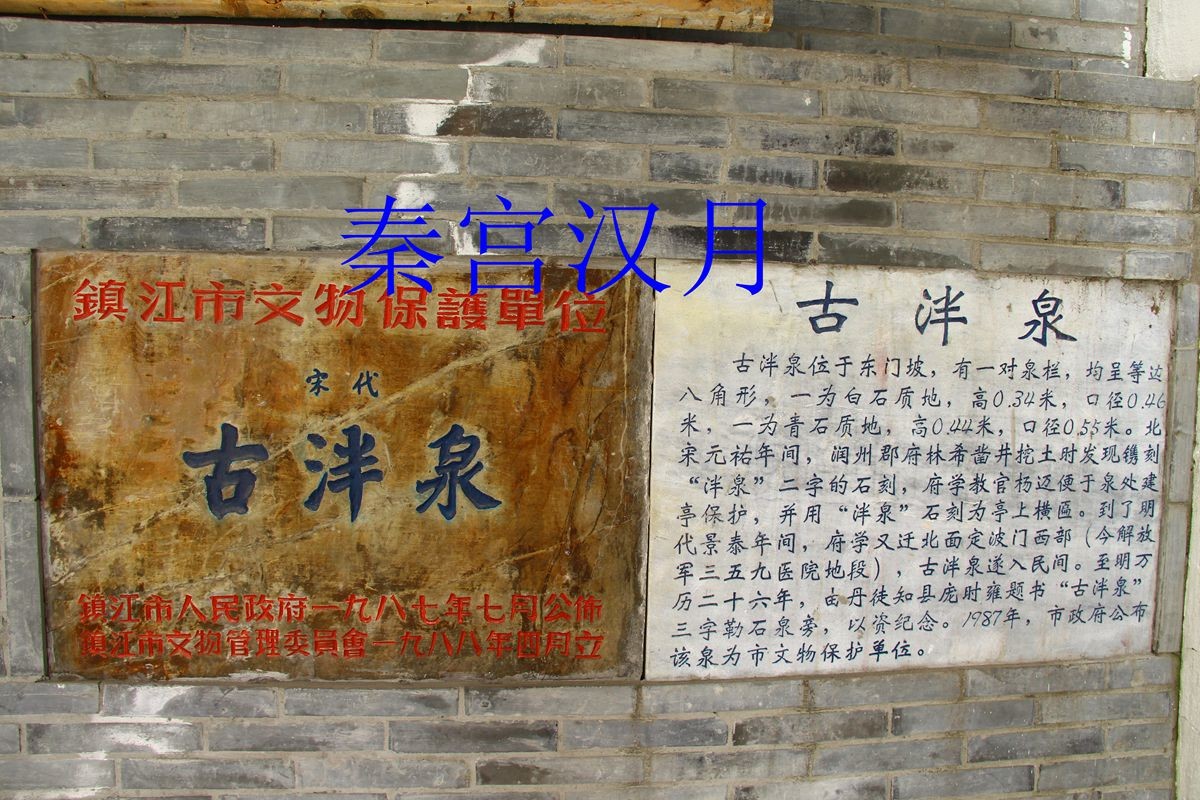 秦宫汉月
鎮江市文物保護單位
宋代
古泮泉
鎮江市人民政府一九八七年七月公佈
鎮江市文物管理委員會一九八八年四月立
古泮泉
古泮泉位于东门坡，有一对泉栏，均呈等边
八角形，一为白石质地，高0.34米，口径0.46
米，一为青石质地，高0.44米，口径0.55米。北
宋元祐年间，润州郡府林希凿井挖土时发现镌刻
“泮泉”二字的石刻，府学教官杨迈便于泉处建
亭保护，并用“泮泉”石刻为亭上横匾。到了明
代景泰年间，府学又迁北面定波门西部（今解放
军三五九医院地段），古泮泉遂入民间。至明万
历二十六年，由丹徒知县庞时雍题书“古泮泉”
三字勒石泉旁，以资纪念。1987年，市政府公布
该泉为市文物保护單位。